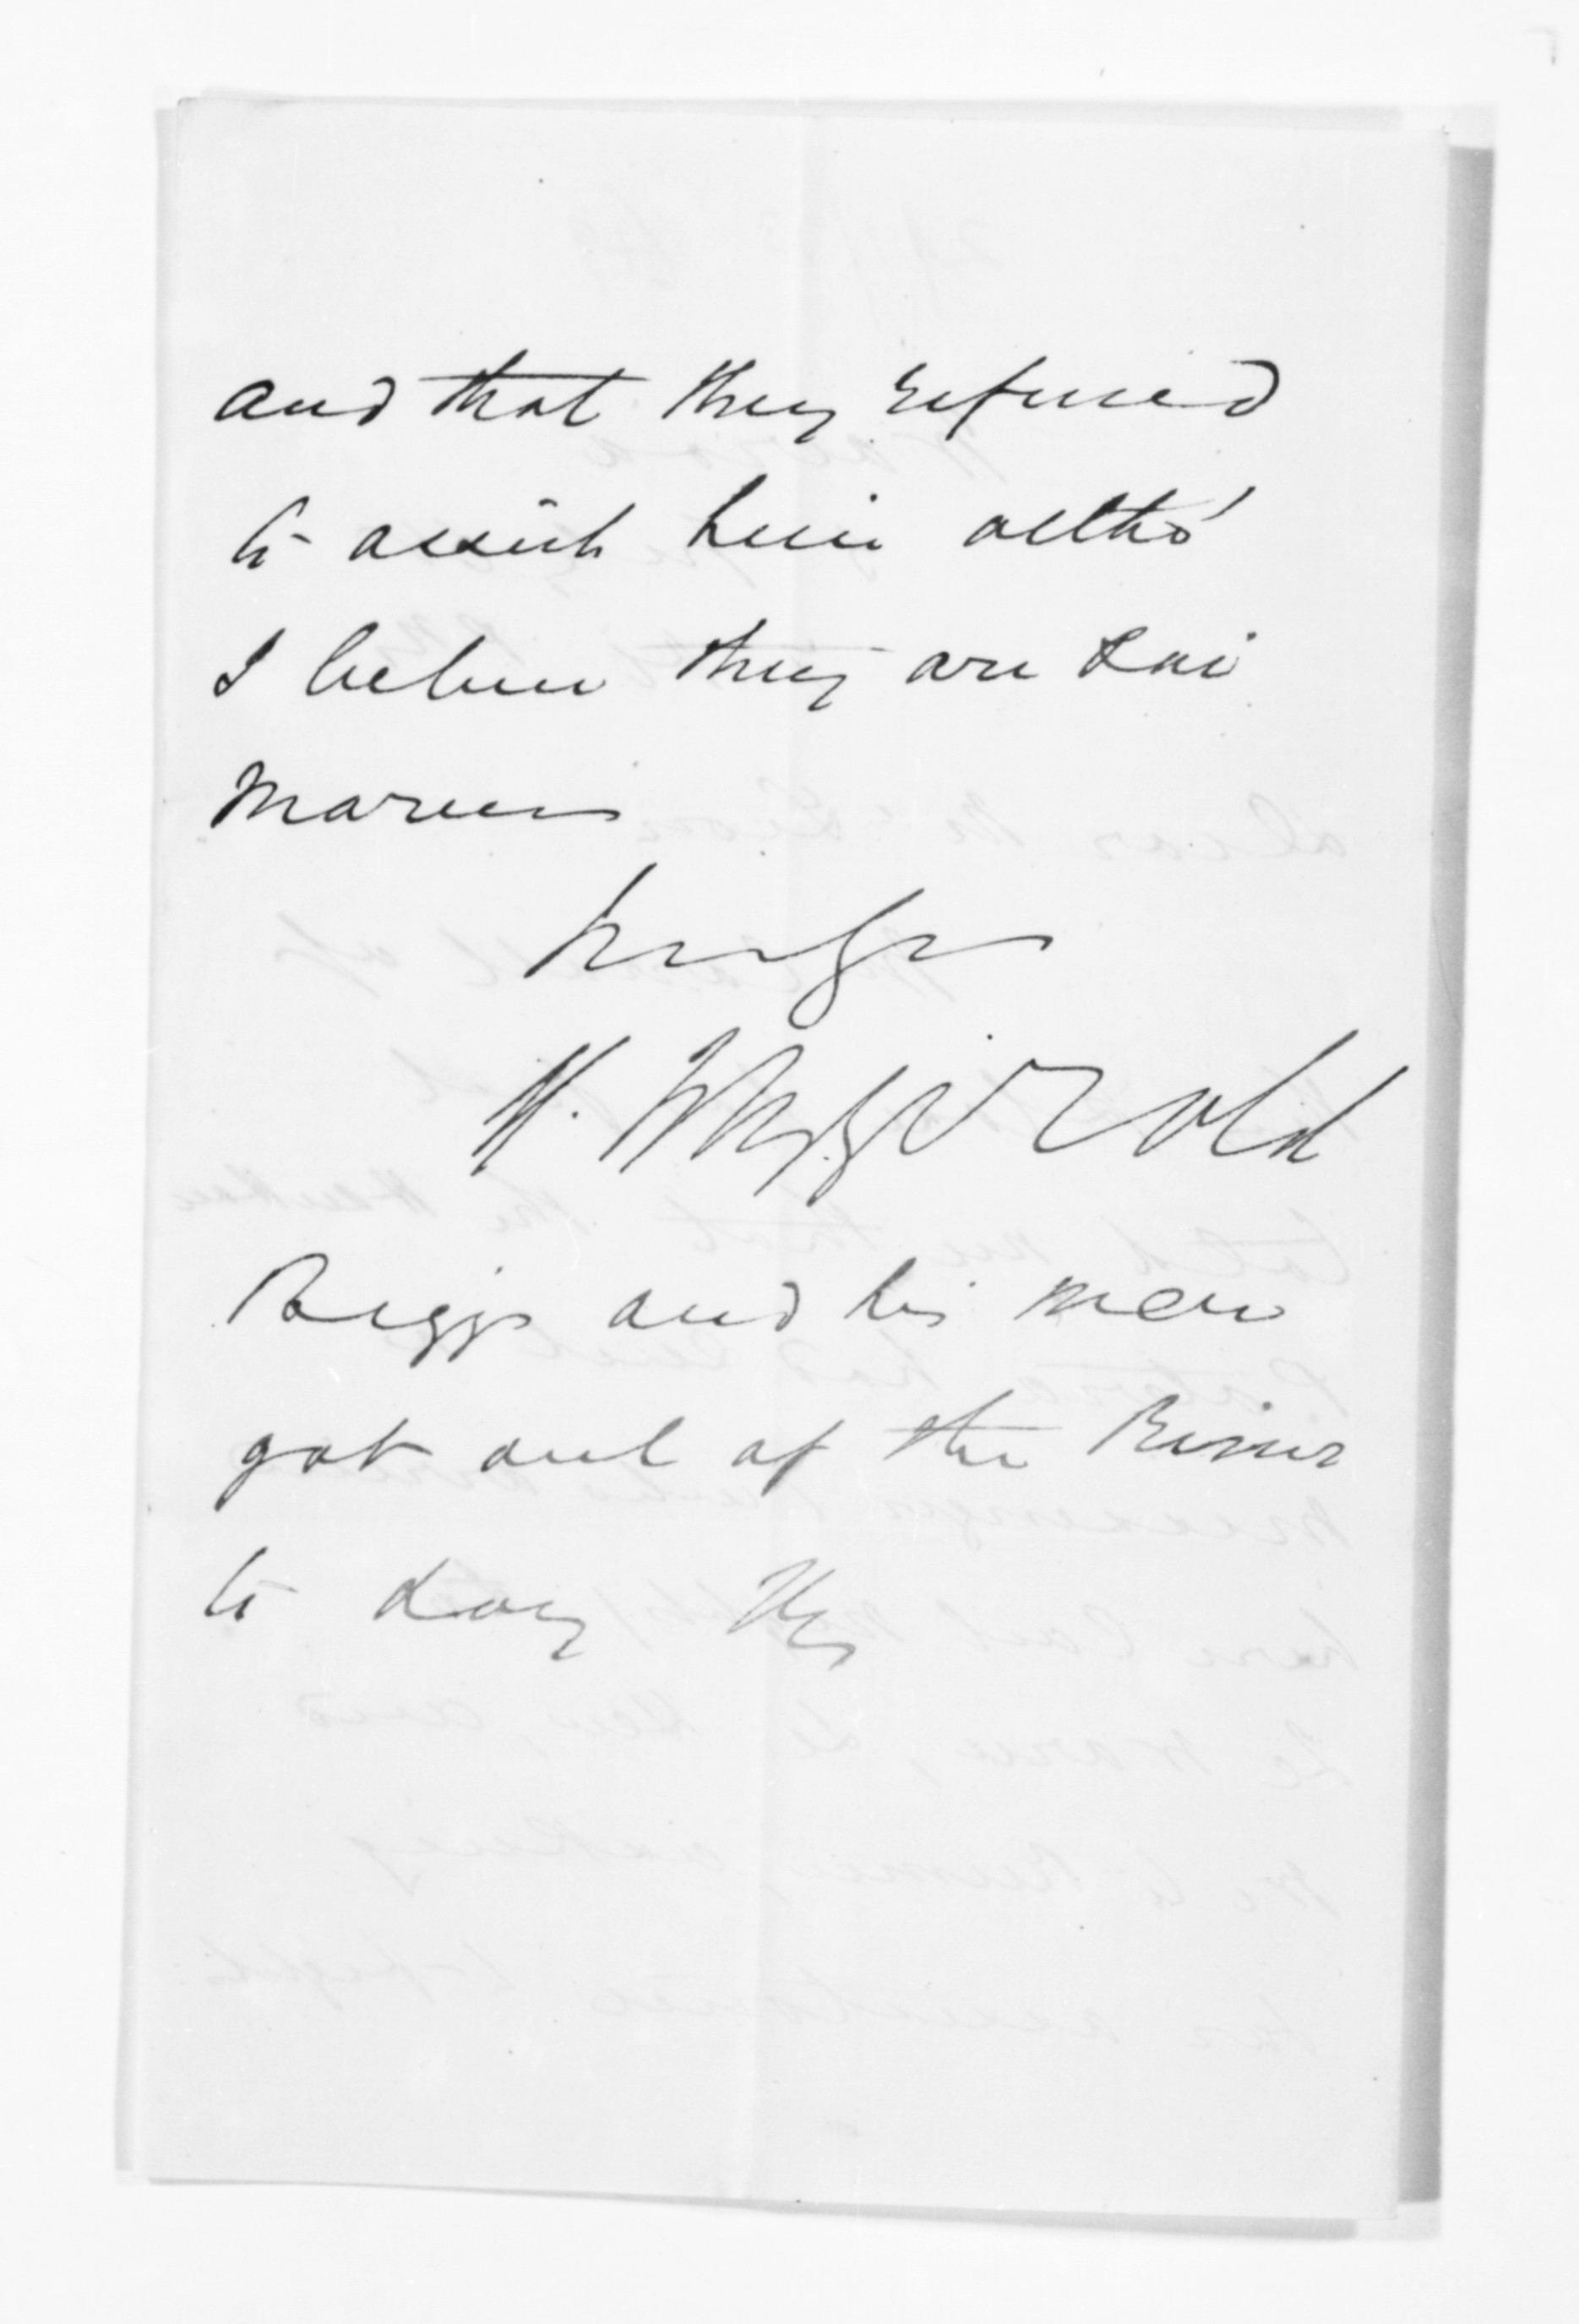 and that they refused
to assist him altho'
I believe they are Hau
Maru
Biggs and his men
got out of the River
to day